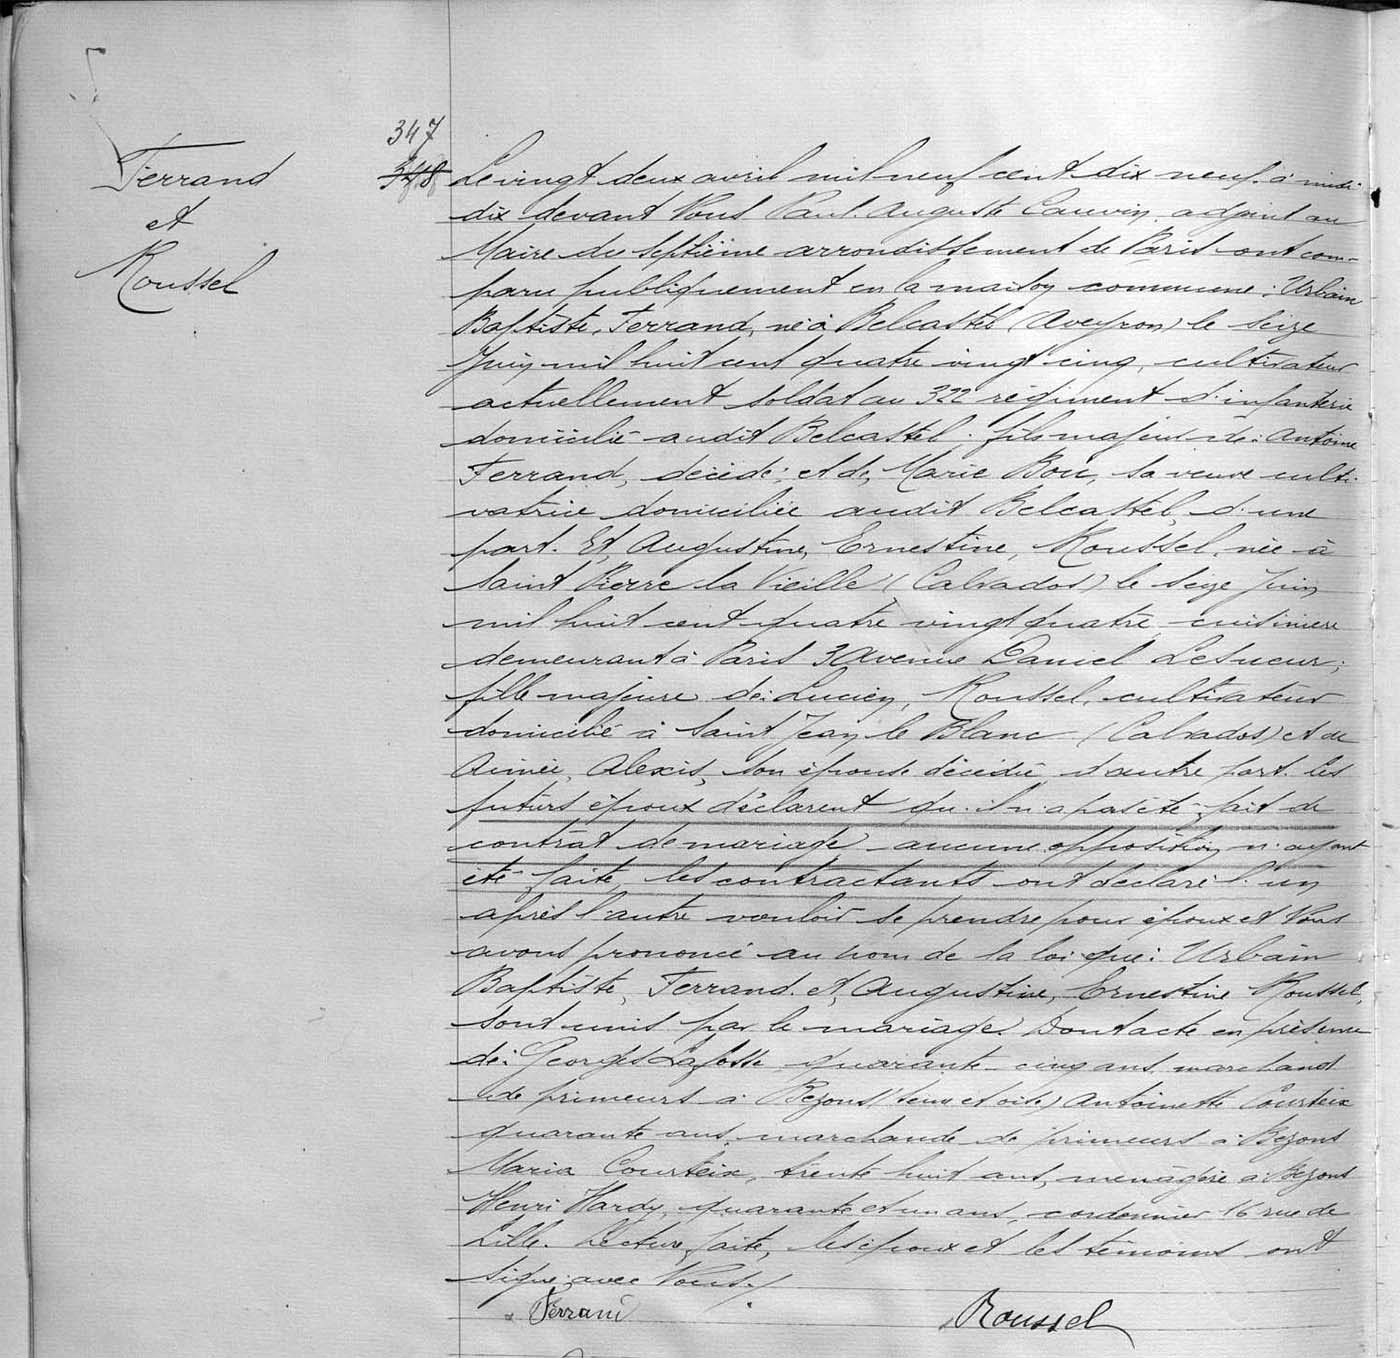 347
348
Ferrand
et
Roussel
Le vingt deux avril mil neuf cent dix neuf à midi
dix devant Nous Paul Auguste Cauvin, adjoint au
Maire du septième arrondissement de Paris ont com-
paru publiquement en la maison commune : Urbain
Baptiste, Ferrand, né à Belcastel (Aveyron) le seize
Juin mil huit cent quatre vingt cinq, cultivateur
actuellement soldat au 322 régiment d'infanterie
domicilié audit Belcastel ; fils majeur de : Antoine
Ferrand, décédé ; et de, Marie Bou, sa veuve culti-
vatrice domiciliée audit Belcastel, d'une
part. Et, Augustine, Ernestine, Roussel, née à
Saint Pierre la Vieille (Calvados) le seize Juin
mil huit cent quatre vingt quatre, cuisinière
demeurant à Paris 3 Avenue Daniel Lesueur ;
fille majeure de : Lucien, Roussel, cultivateur
domicilié à Saint Jean le Blanc (Calvados) et de
Aimée, Alexis, son épouse décédée, d'autre part. Les
futurs époux déclarent qu'il n'a pas été fait de
contrat de mariage, aucune opposition n'ayant
été faite, les contractants ont déclaré l'un
après l'autre vouloir se prendre pour époux et Nous
avons prononcé au nom de la loi que : Urbain
Baptiste, Ferrand. et, Augustine, Ernestine Roussel,
sont unis par le mariage. Dont acte en présence
de : Georges Lafosse quarante-cinq ans, marchand
de primeurs à Bezons (Seine et Oise) Antoinette Courteix
quarante ans, marchande de primeurs à Bezons
Maria Courteix, trente huit ans, ménagère à Bezons
Henri Hardy, quarante et un ans, cordonnier 16 rue de
Lille. Lecture faite, les époux et les témoins ont
signé avec Nous./
Ferrand
Roussel